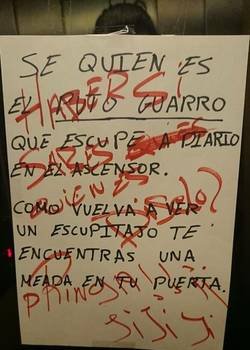 SE QUIEN ES
EL PUTO GUARRO
QUE ESCUPE A DIARIO
EN EL ASCENSOR.
COMO VUELVA A VER
UN ESCUPITAJO TE
ENCUENTRAS UNA
MEADA EN TU PUERTA.
HABER Si
SABES
QUIEN ES
JiJiJi